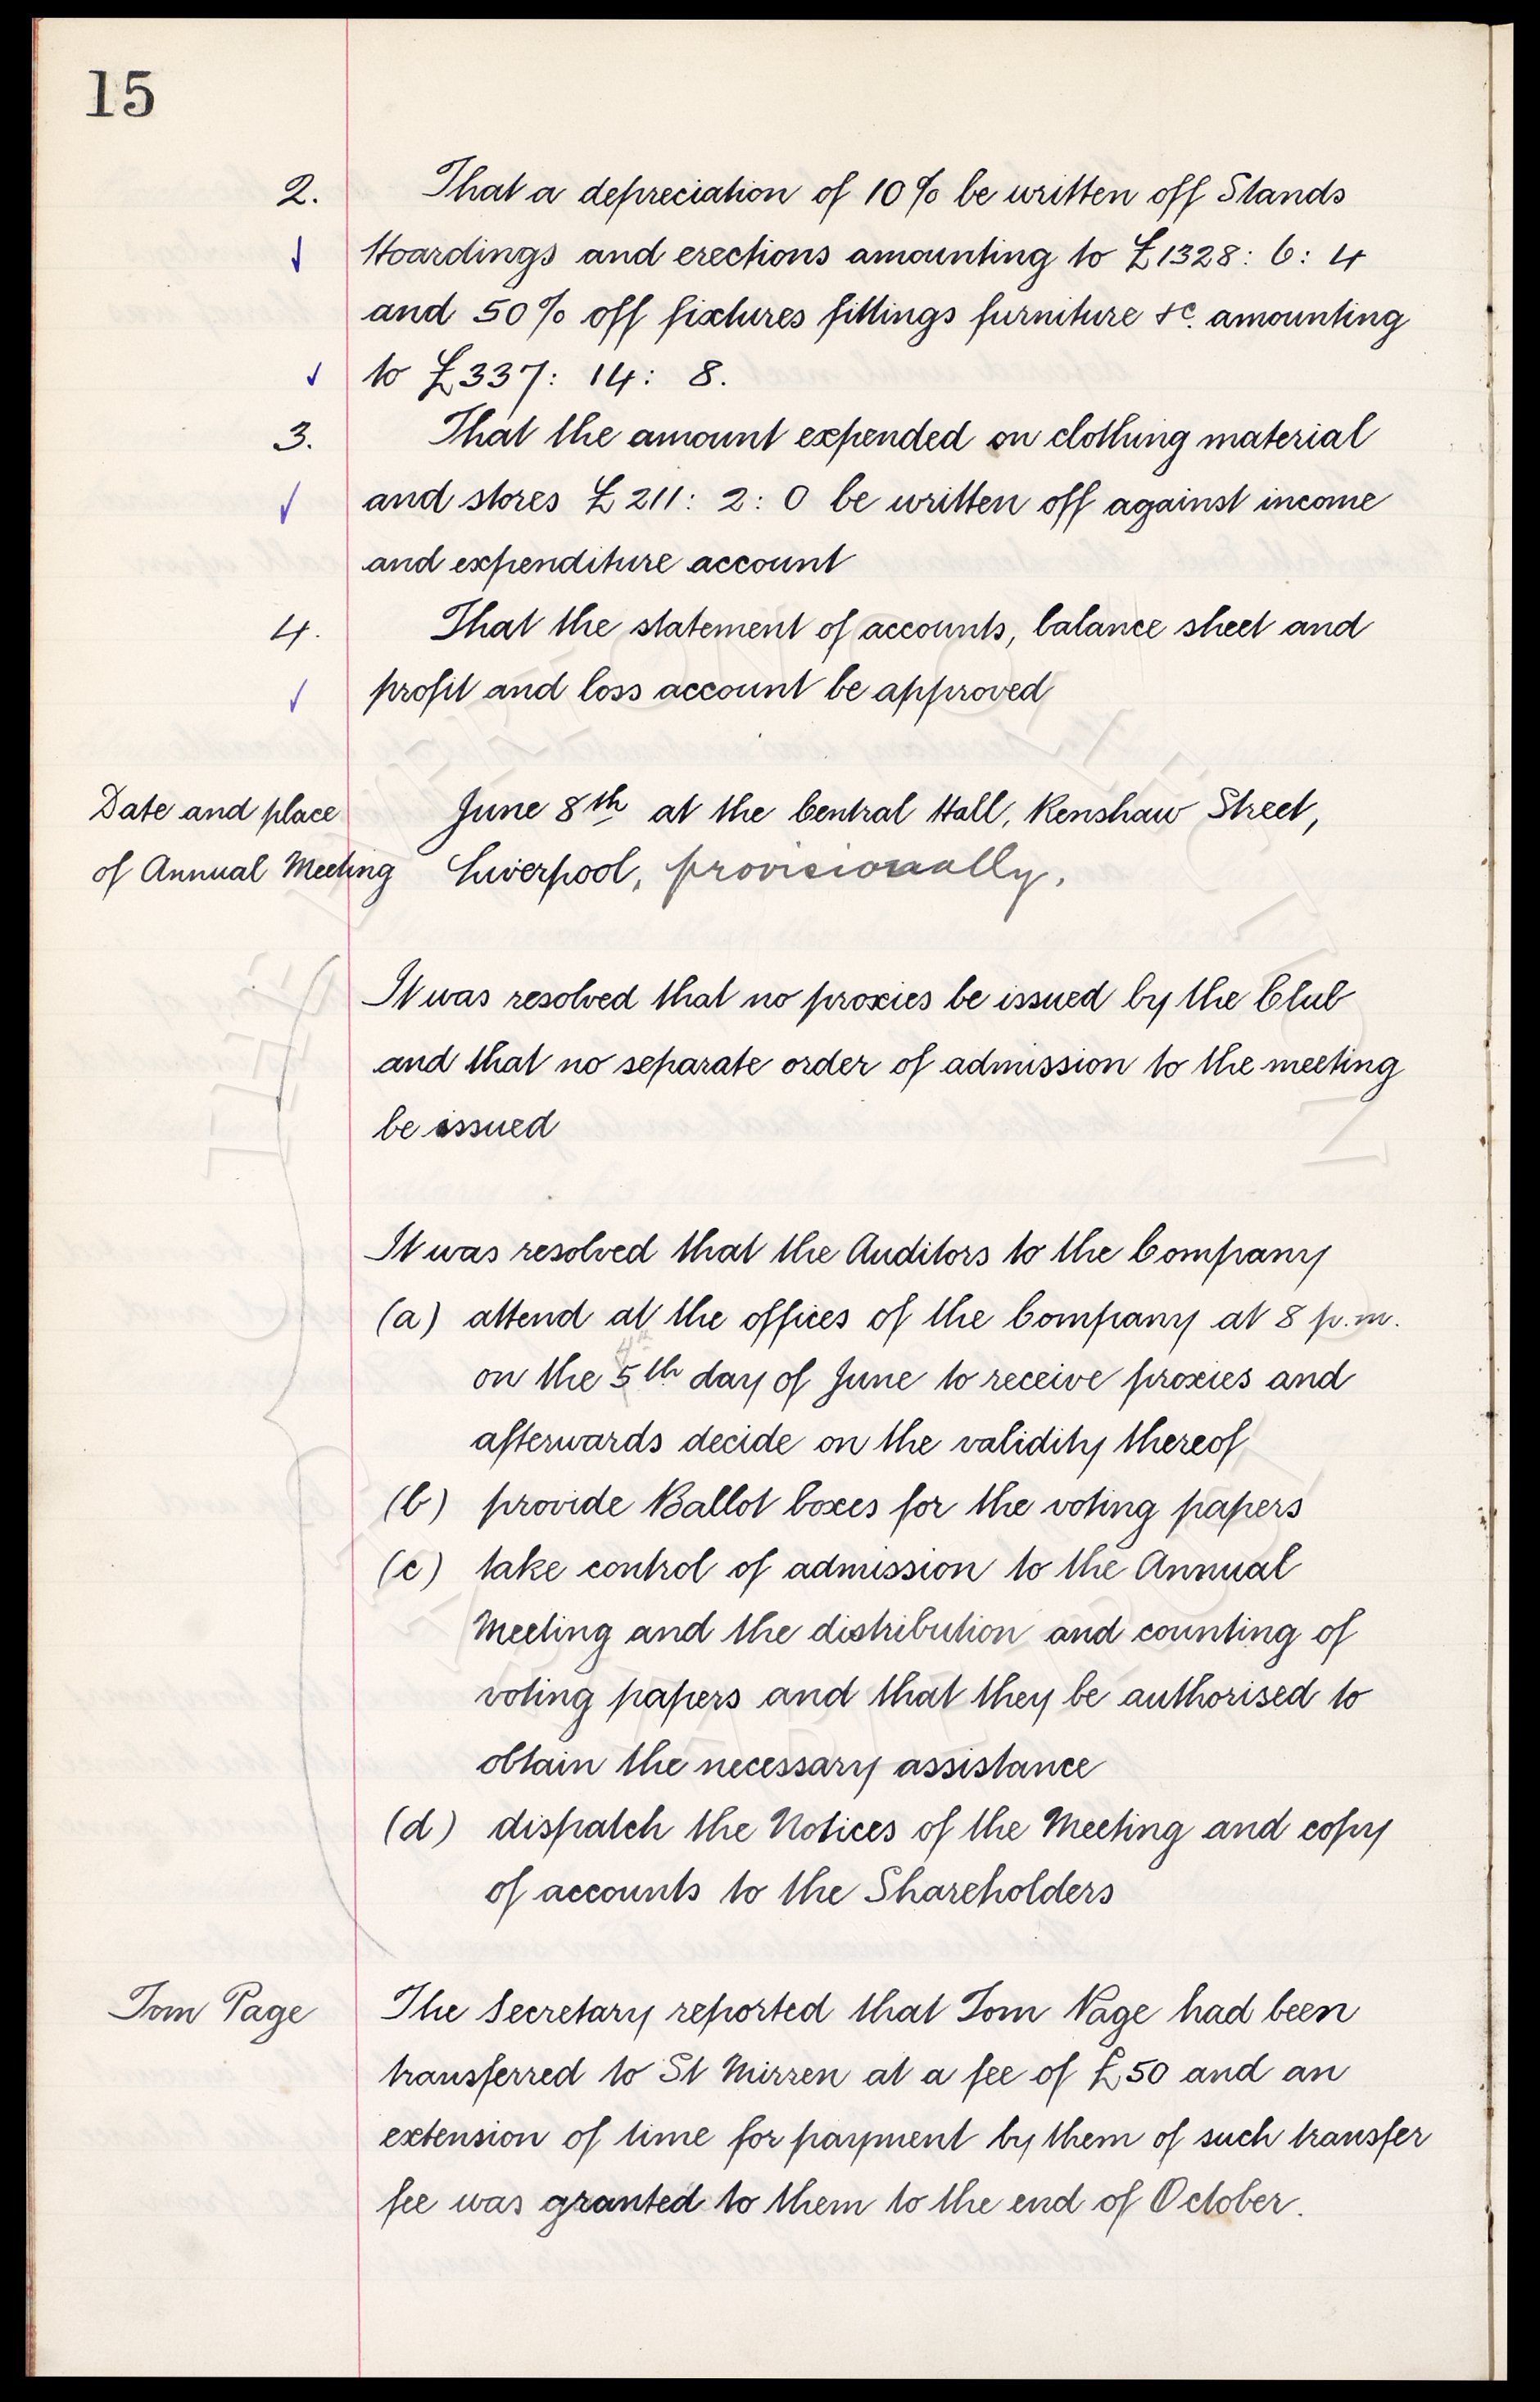 15
2. That a depreciation of 10% be written off Stands
Hoardings and erections amounting to £1328: 6: 4
and 50% off fixtures fittings furniture &c. amounting
to £337: 14: 8.
3. That the amount expended on clothing material
and stores £211: 2: 0 be written off against income
and expenditure account
4. That the statement of accounts, balance sheet and
profit and loss account be approved
Date and place
of Annual Meeting
June 8th at the Central Hall, Renshaw Street,
Liverpool, provisionally.
It was resolved that no proxies be issued by the Club
and that no separate order of admission to the meeting
be issued
It was resolved that the Auditors to the Company
(a) attend at the offices of the Company at 8 p.m.
on the 5th day of June to receive proxies and
afterwards decide on the validity thereof
(b) provide Ballot boxes for the voting papers
(c) take control of admission to the Annual
Meeting and the distribution and counting of
voting papers and that they be authorised to
obtain the necessary assistance
(d) dispatch the Notices of the Meeting and copy
of accounts to the Shareholders
Tom Page
The Secretary reported that Tom Page had been
transferred to St Mirren at a fee of £50 and an
extension of time for payment by them of such transfer
fee was granted to them to the end of October.